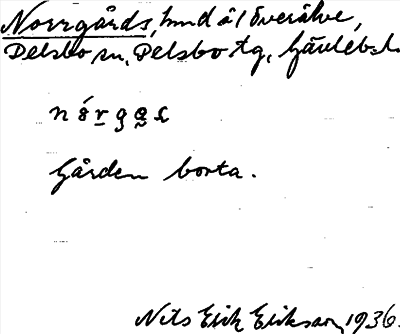 Norrgårds, hmd å 1 Överälve,
Delsbo sn, Delsbo tg, Gävleb. l.
nǿrgas
Gården borta.
Nils Erik Eriksson 1936.